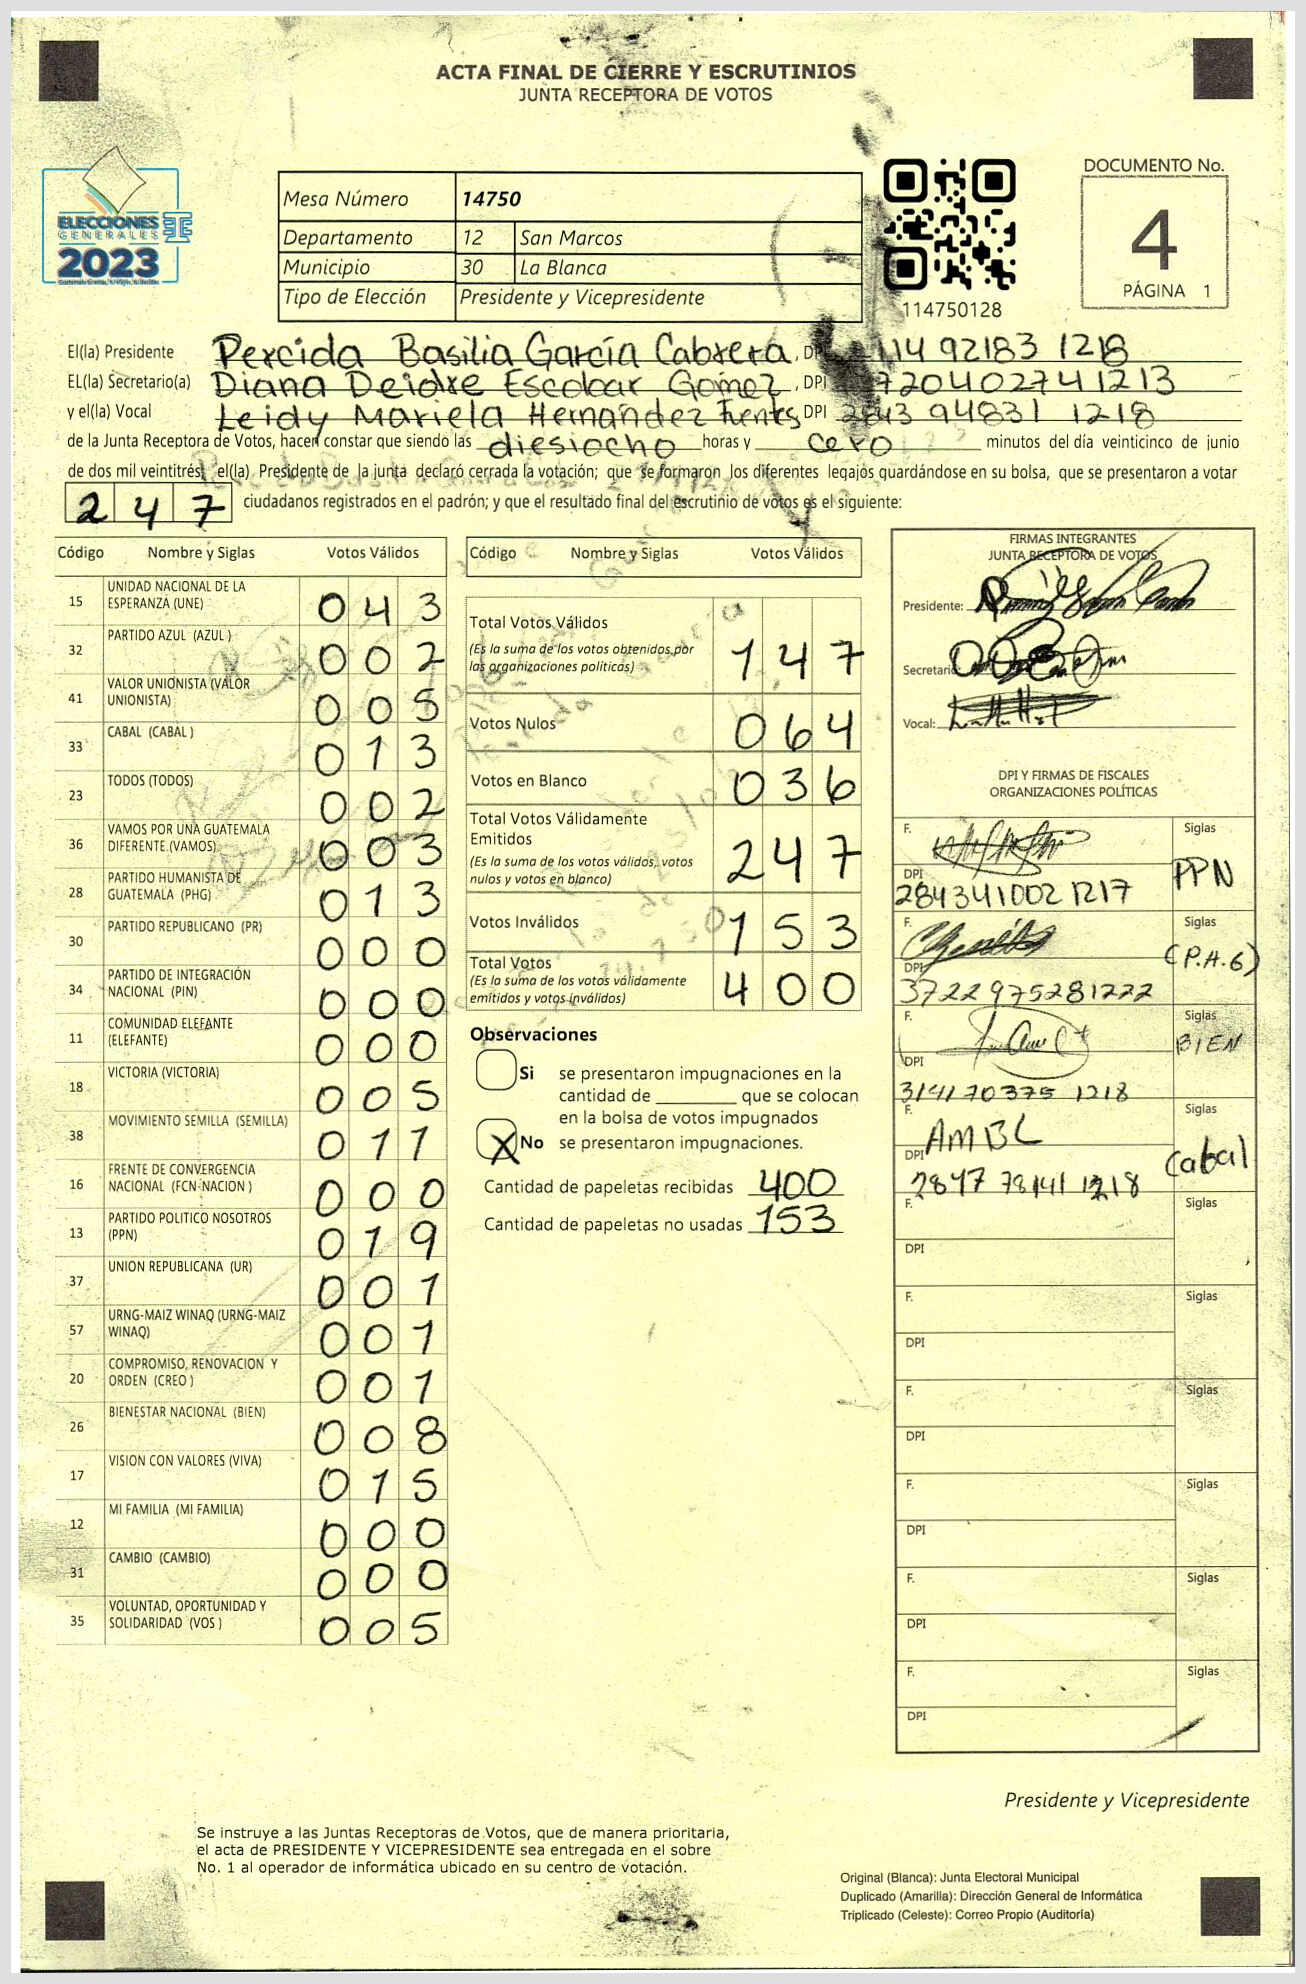 ACTA FINAL DE CIERRE Y ESCRUTINIOS
JUNTA RECEPTORA DE VOTOS
ELECCIONES
GENERALES
2023
Mesa Número 14750
Departamento 12 San Marcos
Municipio 30 La Blanca
Tipo de Elección Presidente y Vicepresidente
114750128
DOCUMENTO No.
4
PÁGINA 1
El(la) Presidente Percida Basilia García Cabrera, DPI 114 92183 1218
EL(la) Secretario(a) Diana Deidre Escobar Gómez, DPI 7204027411213
y el(la) Vocal Leidy Mariela Hernández Fuentes DPI 2843 94831 1218
de la Junta Receptora de Votos, hacen constar que siendo las diesiocho horas y cero minutos del día veinticinco de junio
de dos mil veintitrés, el(la) Presidente de la junta declaró cerrada la votación; que se formaron los diferentes legajos guardándose en su bolsa, que se presentaron a votar
247 ciudadanos registrados en el padrón; y que el resultado final del escrutinio de votos es el siguiente:
Código Nombre y Siglas Votos Válidos
15 UNIDAD NACIONAL DE LA ESPERANZA (UNE) 043
32 PARTIDO AZUL (AZUL ) 002
41 VALOR UNIONISTA (VALOR UNIONISTA) 005
33 CABAL (CABAL ) 013
23 TODOS (TODOS) 002
36 VAMOS POR UNA GUATEMALA DIFERENTE (VAMOS) 003
28 PARTIDO HUMANISTA DE GUATEMALA (PHG) 013
30 PARTIDO REPUBLICANO (PR) 000
34 PARTIDO DE INTEGRACIÓN NACIONAL (PIN) 000
11 COMUNIDAD ELEFANTE (ELEFANTE) 000
18 VICTORIA (VICTORIA) 005
38 MOVIMIENTO SEMILLA (SEMILLA) 011
16 FRENTE DE CONVERGENCIA NACIONAL (FCN-NACION ) 000
13 PARTIDO POLITICO NOSOTROS (PPN) 019
37 UNION REPUBLICANA (UR) 001
57 URNG-MAIZ WINAQ (URNG-MAIZ WINAQ) 001
20 COMPROMISO, RENOVACION Y ORDEN (CREO ) 001
26 BIENESTAR NACIONAL (BIEN) 008
17 VISION CON VALORES (VIVA) 015
12 MI FAMILIA (MI FAMILIA) 000
31 CAMBIO (CAMBIO) 000
35 VOLUNTAD, OPORTUNIDAD Y SOLIDARIDAD (VOS ) 005
Código Nombre y Siglas Votos Válidos
Total Votos Válidos 147
(Es la suma de los votos obtenidos por
las organizaciones políticas)
Votos Nulos 064
Votos en Blanco 036
Total Votos Válidamente
Emitidos 247
(Es la suma de los votos válidos, votos
nulos y votos en blanco)
Votos Inválidos 153
Total Votos 400
(Es la suma de los votos válidamente
emitidos y votos inválidos)
Observaciones
Si se presentaron impugnaciones en la
cantidad de ________ que se colocan
en la bolsa de votos impugnados
X No se presentaron impugnaciones.
Cantidad de papeletas recibidas 400
Cantidad de papeletas no usadas 153
FIRMAS INTEGRANTES
JUNTA RECEPTORA DE VOTOS
Presidente:
Secretario
Vocal:
DPI Y FIRMAS DE FISCALES
ORGANIZACIONES POLÍTICAS
F. Siglas PPN
DPI 284341002 1217
F. Siglas (P.H.G)
DPI 3722975281222
F. Siglas BIEN
DPI 314170375 1218
F. AMBL Siglas Cabal
DPI 2847 78141 1218
F. Siglas
DPI
F. Siglas
DPI
F. Siglas
DPI
F. Siglas
DPI
F. Siglas
DPI
F. Siglas
DPI
Presidente y Vicepresidente
Se instruye a las Juntas Receptoras de Votos, que de manera prioritaria,
el acta de PRESIDENTE Y VICEPRESIDENTE sea entregada en el sobre
No. 1 al operador de informática ubicado en su centro de votación.
Original (Blanca): Junta Electoral Municipal
Duplicado (Amarilla): Dirección General de Informática
Triplicado (Celeste): Correo Propio (Auditoría)